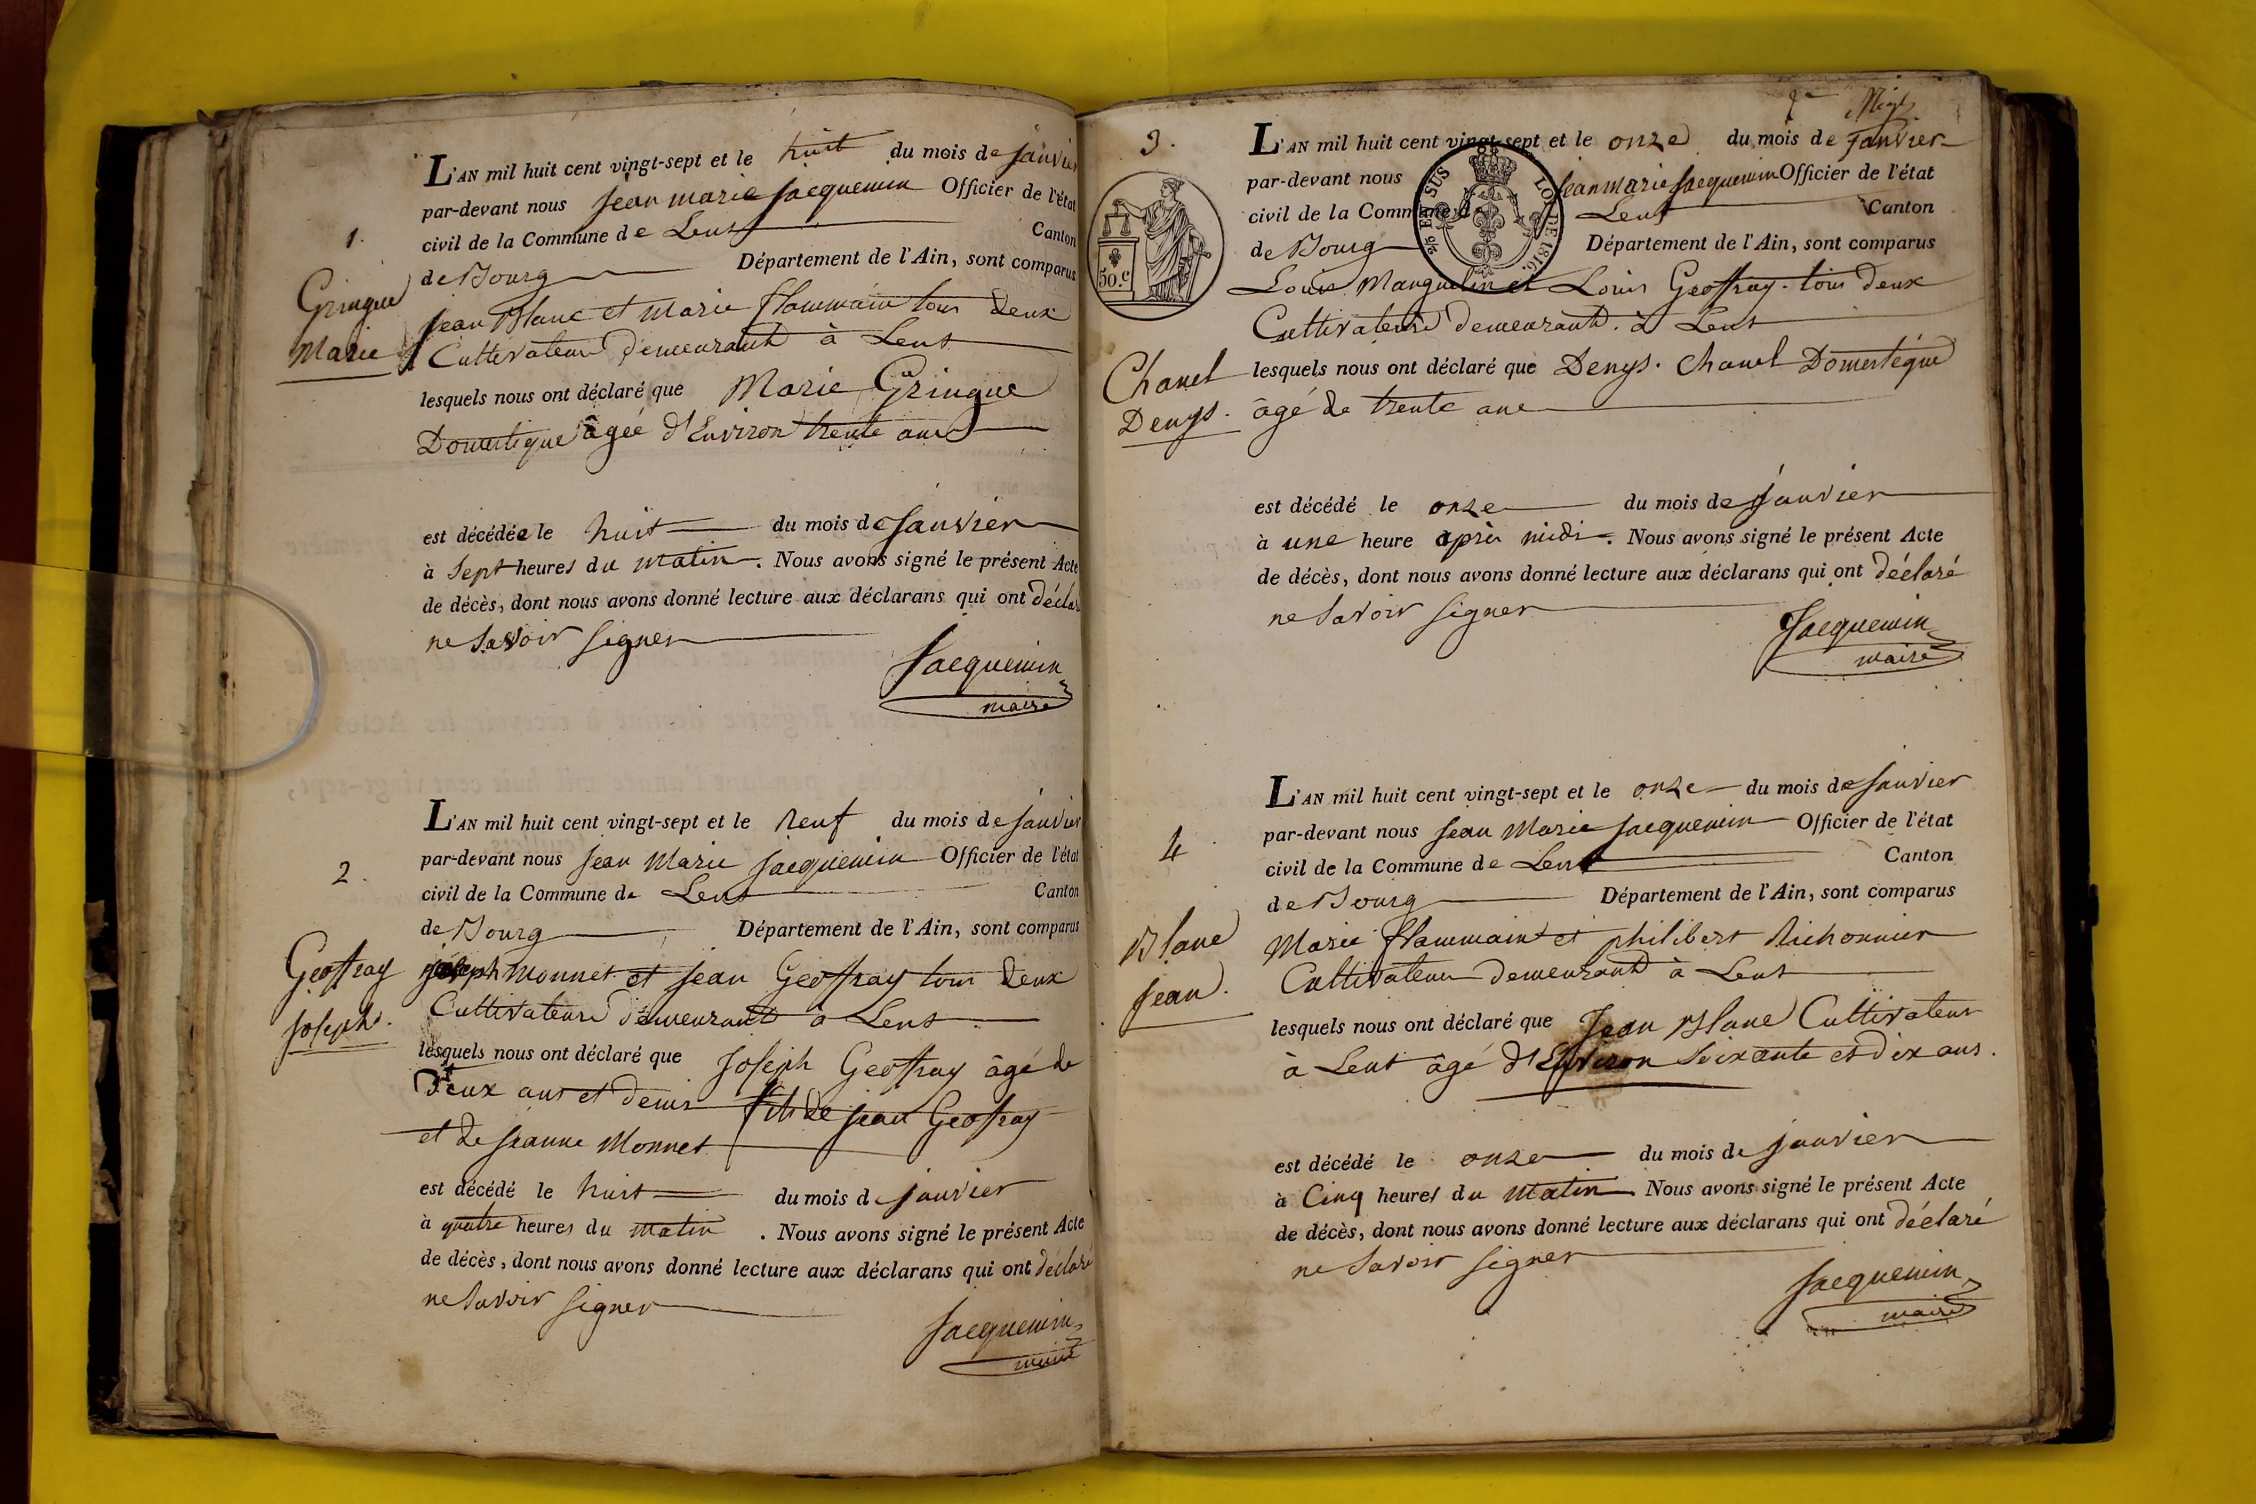 1.
Gringue
Marie
L'AN mil huit cent vingt-sept et le huit du mois de janvier
par-devant nous Jean marie Jacquemin Officier de l'état
civil de la Commune de Lent Canton
de Bourg Département de l'Ain, sont comparus
Jean Blanc et Marie flammain tous deux
Cultivateurs demeurant à Lent
lesquels nous ont déclaré que Marie Gringue
Domestique âgée d'Environ trente ans
est décédée le huit du mois de Janvier
à Sept heures du matin. Nous avons signé le présent Acte
de décès, dont nous avons donné lecture aux déclarans qui ont déclaré
ne Savoir signer
Jacquemin
maire
2.
Geoffray
Joseph.
L'AN mil huit cent vingt-sept et le Neuf du mois de janvier
par-devant nous Jean Marie Jacquemin Officier de l'état
civil de la Commune de Lent Canton
de Bourg Département de l'Ain, sont comparus
joseph Monnet et Jean Geoffray tous deux
Cultivateurs demeurant à Lent
lesquels nous ont déclaré que Joseph Geoffray âgé de
Deux ans et demi fils de Jean Geoffray
et de Jeanne Monnet
est décédé le huit du mois de janvier
à quatre heures du matin. Nous avons signé le présent Acte
de décès, dont nous avons donné lecture aux déclarans qui ont déclaré
ne Savoir signer
Jacquemin
maire
3.
50.c
Chanel
Denys.
L'AN mil huit cent vingt-sept et le onze du mois de Janvier
par-devant nous Jean marie Jacquemin Officier de l'état
civil de la Commune de Lent Canton
de Bourg Département de l'Ain, sont comparus
LOI DE 1816.
EN SUS
Louis Manguelin et Louis Geoffray tous deux
Cultivateurs demeurant à Lent
lesquels nous ont déclaré que Denys Chanel Domestique
âgé de trente ans
est décédé le onze du mois de Janvier
à une heure après midi. Nous avons signé le présent Acte
de décès, dont nous avons donné lecture aux déclarans qui ont déclaré
ne Savoir signer
Jacquemin
maire
4
Blanc
Jean.
L'AN mil huit cent vingt-sept et le onze du mois de Janvier
par-devant nous Jean Marie Jacquemin Officier de l'état
civil de la Commune de Lent Canton
de Bourg Département de l'Ain, sont comparus
Marie flammain et philibert Richonnier
Cultivateurs demeurant à Lent
lesquels nous ont déclaré que Jean Blanc Cultivateur
à Lent âgé d'Environ Soixante et dix ans.
est décédé le onze du mois de janvier
à Cinq heures du Matin. Nous avons signé le présent Acte
de décès, dont nous avons donné lecture aux déclarans qui ont déclaré
ne Savoir signer
Jacquemin
maire